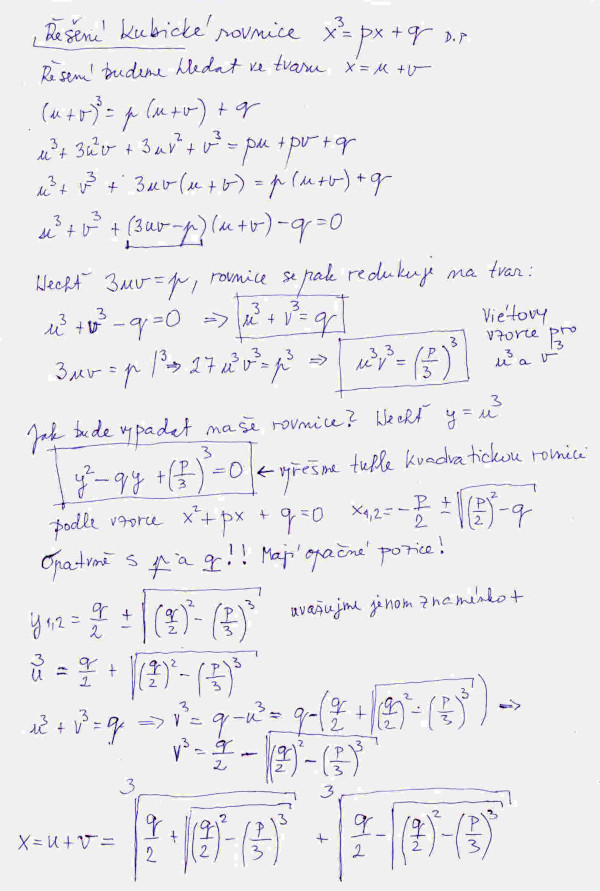 Řešení kubické rovnice x³ = px + q D.P.
Řešení budeme hledat ve tvaru x = u + v
(u+v)³ = p(u+v) + q
u³ + 3u²v + 3uv² + v³ = pu + pv + q
u³ + v³ + 3uv(u+v) = p(u+v) + q
u³ + v³ + (3uv-p)(u+v) - q = 0
Nechť 3uv = p, rovnice se pak redukuje na tvar:
u³ + v³ - q = 0 => u³ + v³ = q
3uv = p |³ => 27u³v³ = p³ => u³v³ = (p/3)³
Vietovy
vzorce pro
u³ a v³
Jak bude vypadat naše rovnice? Nechť y = u³
y² - qy + (p/3)³ = 0 ← vyřešme tuhle kvadratickou rovnici
podle vzorce x² + px + q = 0 x₁,₂ = -p/2 ± √((p/2)² - q)
Opatrně s p a q!! Mají opačné pozice!
y₁,₂ = q/2 ± √((q/2)² - (p/3)³) uvažujme jenom znaménko +
u³ = q/2 + √((q/2)² - (p/3)³)
u³ + v³ = q => v³ = q - u³ = q - (q/2 + √((q/2)² - (p/3)³)) =>
v³ = q/2 - √((q/2)² - (p/3)³)
x = u + v = ³√(q/2 + √((q/2)² - (p/3)³)) + ³√(q/2 - √((q/2)² - (p/3)³))